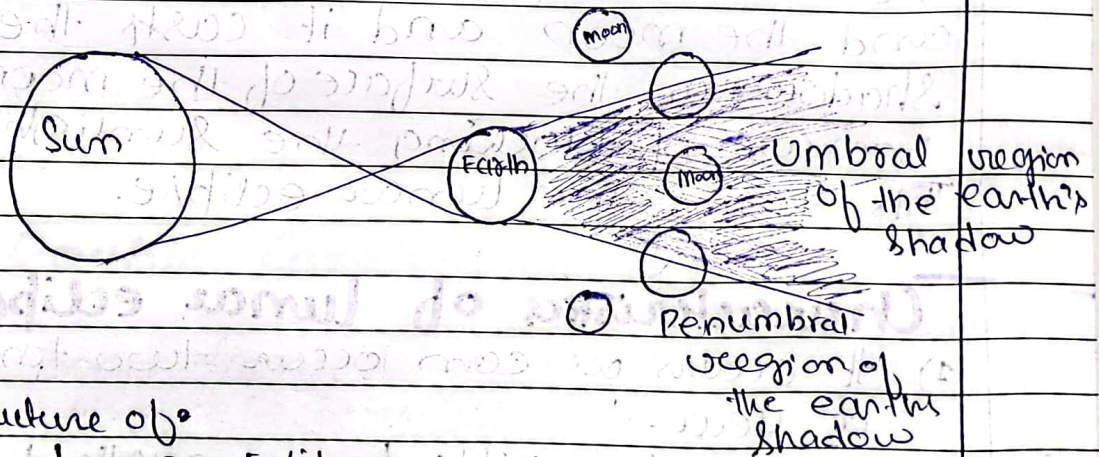 moon
Sun
Earth
Moon
Umbral region
of the earth's
shadow
Penumbral
region of
the earths
shadow
of